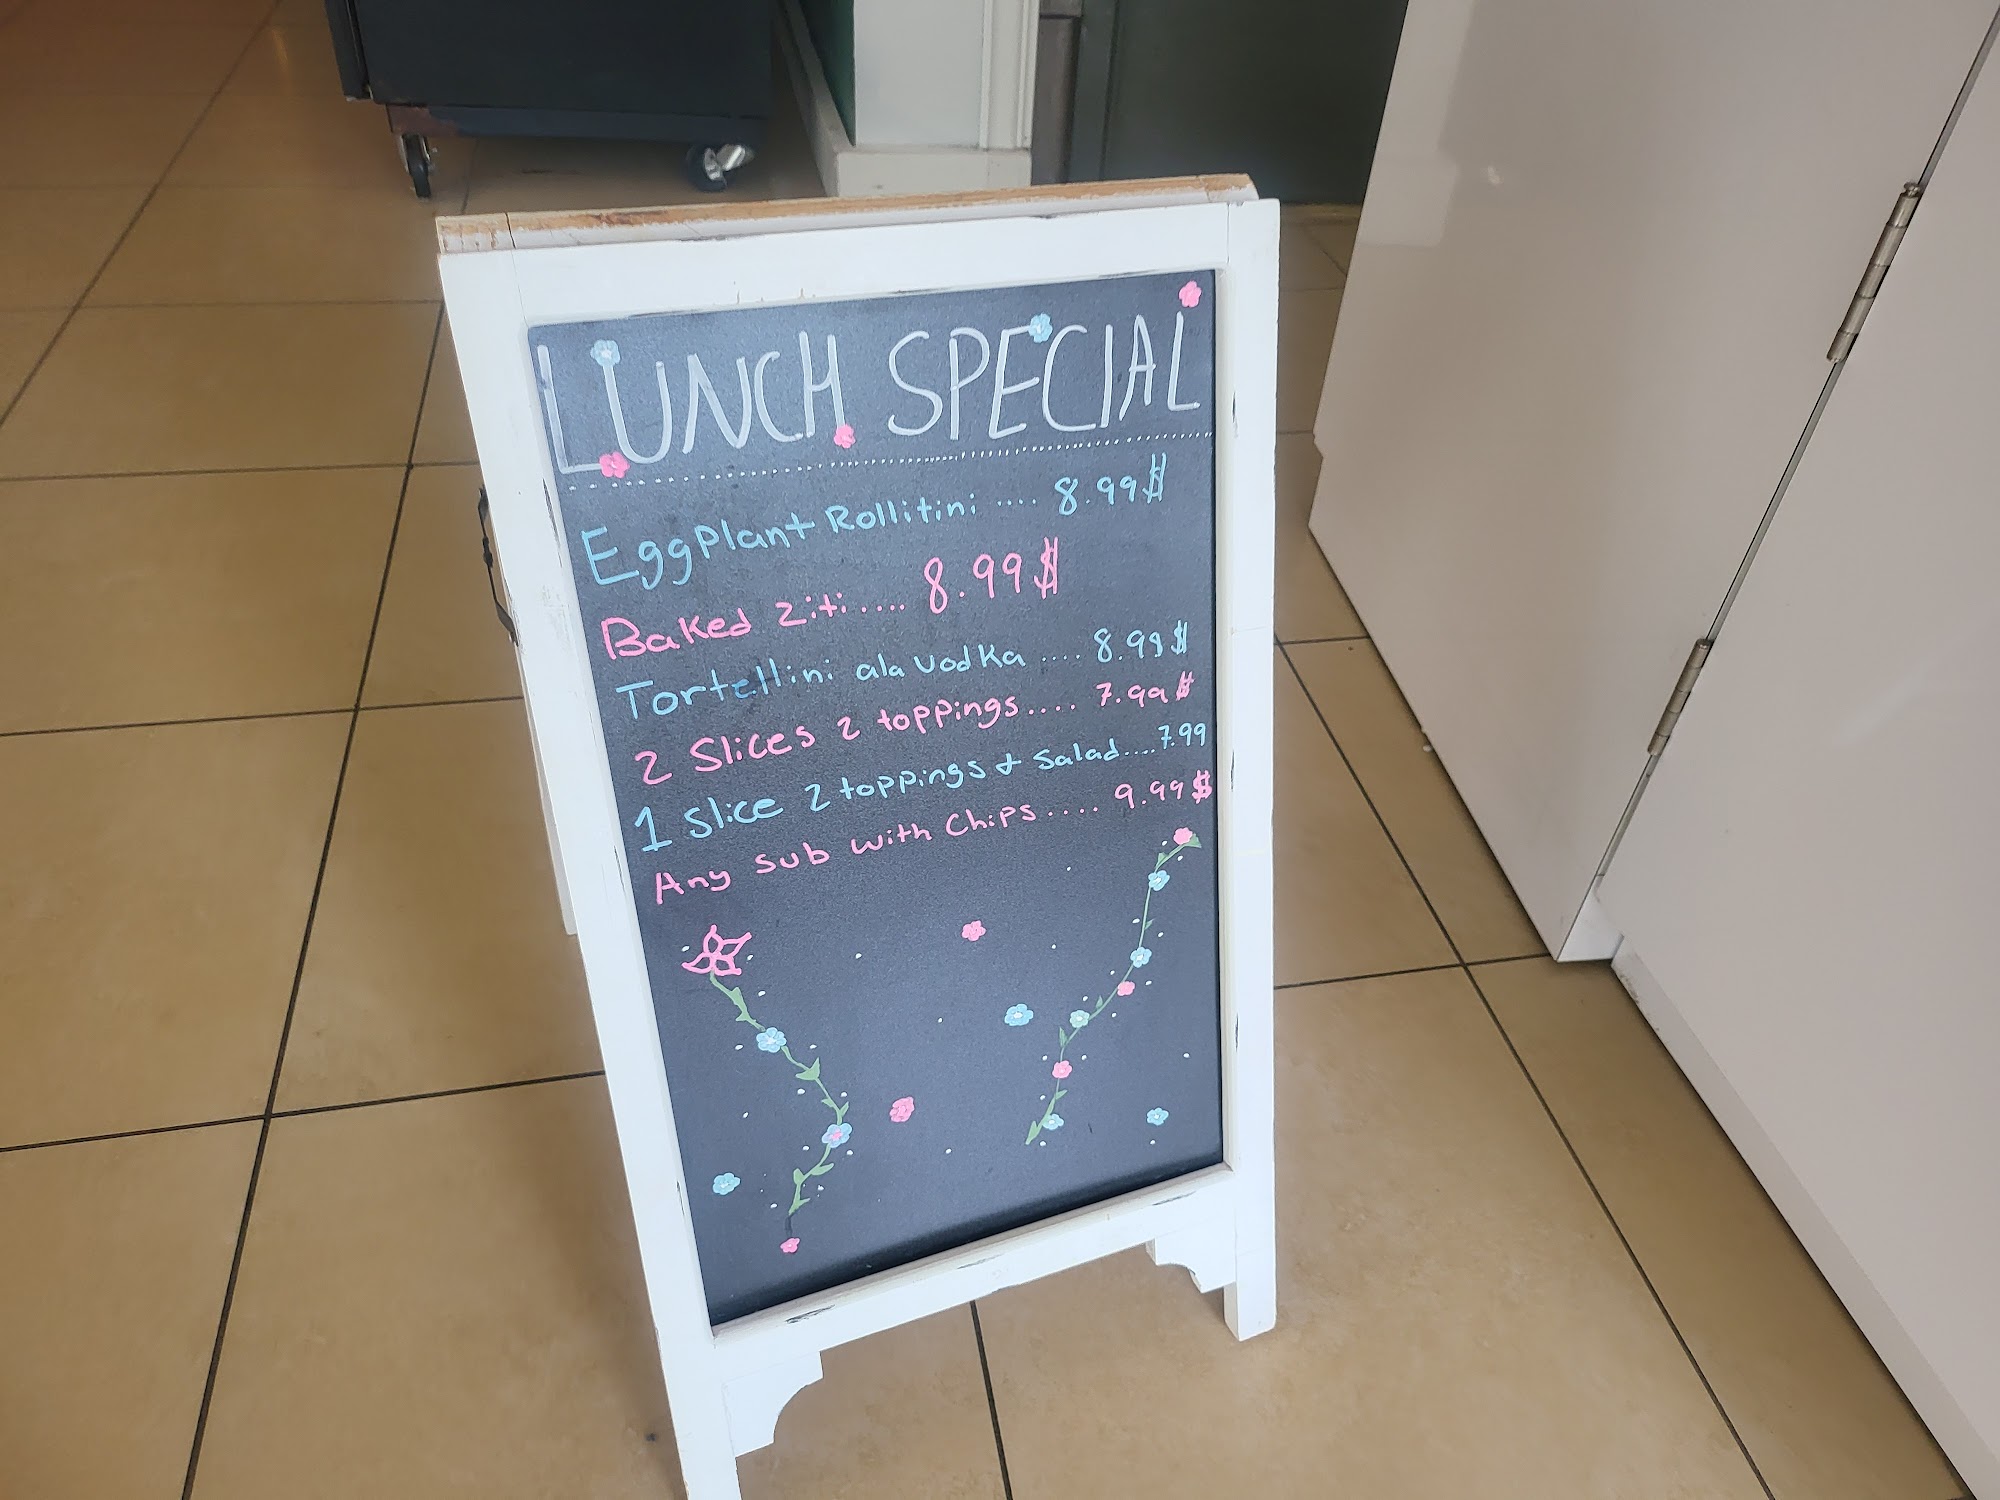 LUNCH SPECIAL
EggPlant Rollitini .... 8.99$
Baked ziti .... 8.99$
Tortellini ala vodka .... 8.99$
2 Slices 2 toppings .... 7.99$
1 Slice 2 toppings + Salad .... 7.99
Any Sub with Chips .... 9.99$